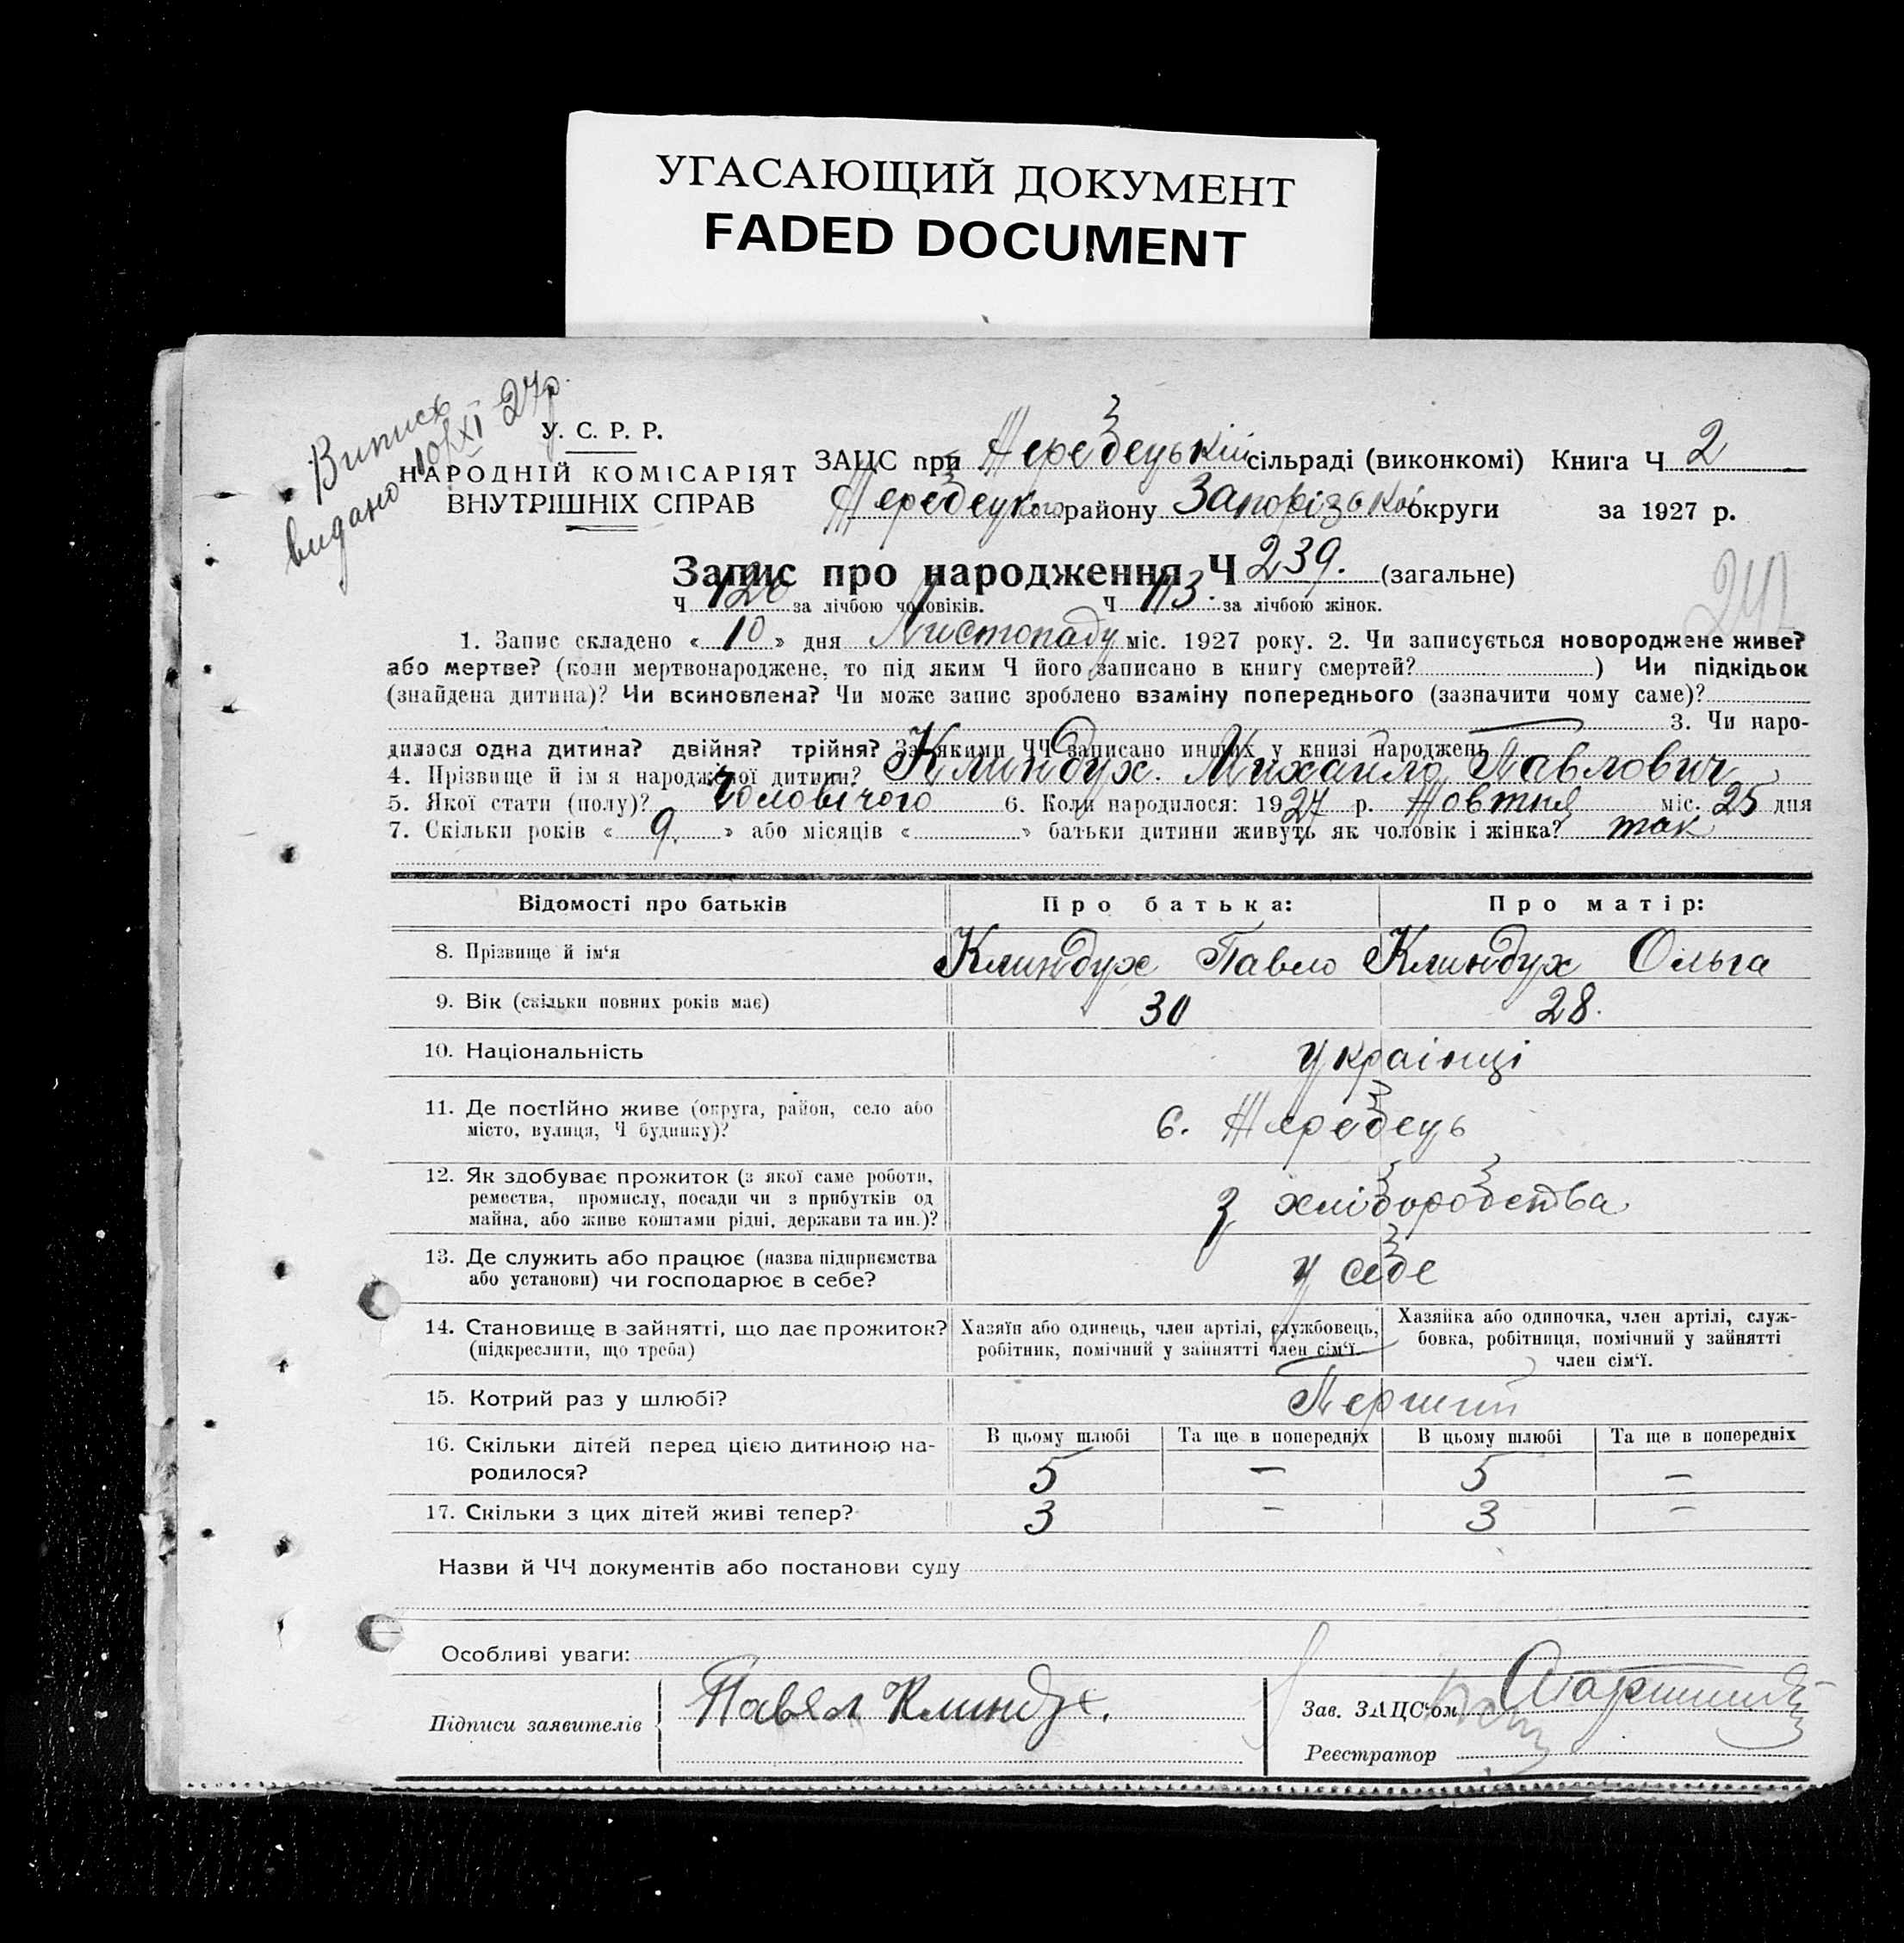 УГАСАЮЩИЙ ДОКУМЕНТ
FADED DOCUMENT
Випись
видано 10/XI 27р.
У. С. Р. Р.
НАРОДНІЙ КОМІСАРІЯТ
ВНУТРІШНІХ СПРАВ
ЗАЦС при Жеребецькій сільраді (виконкомі) Книга Ч 2
Жеребецького району Запорізької округи за 1927 р.
Запис про народження Ч 239. (загальне)
242
Ч 126 за лічбою чоловіків. Ч 113. за лічбою жінок.
1. Запис складено « 10 » дня Листопаду міс. 1927 року. 2. Чи записується новороджене живе?
або мертве? (коли мертвонароджене, то під яким Ч його записано в книгу смертей? ) Чи підкідьок
(знайдена дитина)? Чи всиновлена? Чи може запис зроблено взаміну попереднього (зазначити чому саме)?
3. Чи наро-
дилася одна дитина? двійня? трійня? За якими ЧЧ записано инших у книзі народжень
4. Прізвище й імя народженої дитини? Клиндух Михайло Павлович
5. Якої стати (полу)? Чоловічого 6. Коли народилося: 1927 р. Жовтня міс. 25 дня
7. Скільки років « 9 » або місяців « » батьки дитини живуть як чоловік і жінка? так
Відомості про батьків Про батька: Про матір:
8. Прізвище й ім‘я Клиндух Павло Клиндух Ольга
9. Вік (скільки повних років має) 30 28.
10. Національність українці
11. Де постійно живе (округа, район, село або
місто, вулиця, Ч будинку)? с. Жеребець
12. Як здобуває прожиток (з якої саме роботи,
ремества, промислу, посади чи з прибутків од
майна, або живе коштами рідні, держави та ин.)? З хліборобства
13. Де служить або працює (назва підприємства
або установи) чи господарює в себе? У себе
14. Становище в зайнятті, що дає прожиток?
(підкреслити, що треба)
Хазяїн або одинець, член артілі, службовець,
робітник, помічний у зайнятті член сім‘ї.
Хазяйка або одиночка, член артілі, служ-
бовка, робітниця, помічний у зайнятті
член сім‘ї.
15. Котрий раз у шлюбі? Перший
16. Скільки дітей перед цією дитиною на-
родилося?
В цьому шлюбі Та ще в попередніх В цьому шлюбі Та ще в попередніх
5 — 5 —
17. Скільки з цих дітей живі тепер? 3 — 3 —
Назви й ЧЧ документів або постанови суду
Особливі уваги:
Підписи заявителів Павел Клиндух.
Зав. ЗАЦС‘ом
Реєстратор